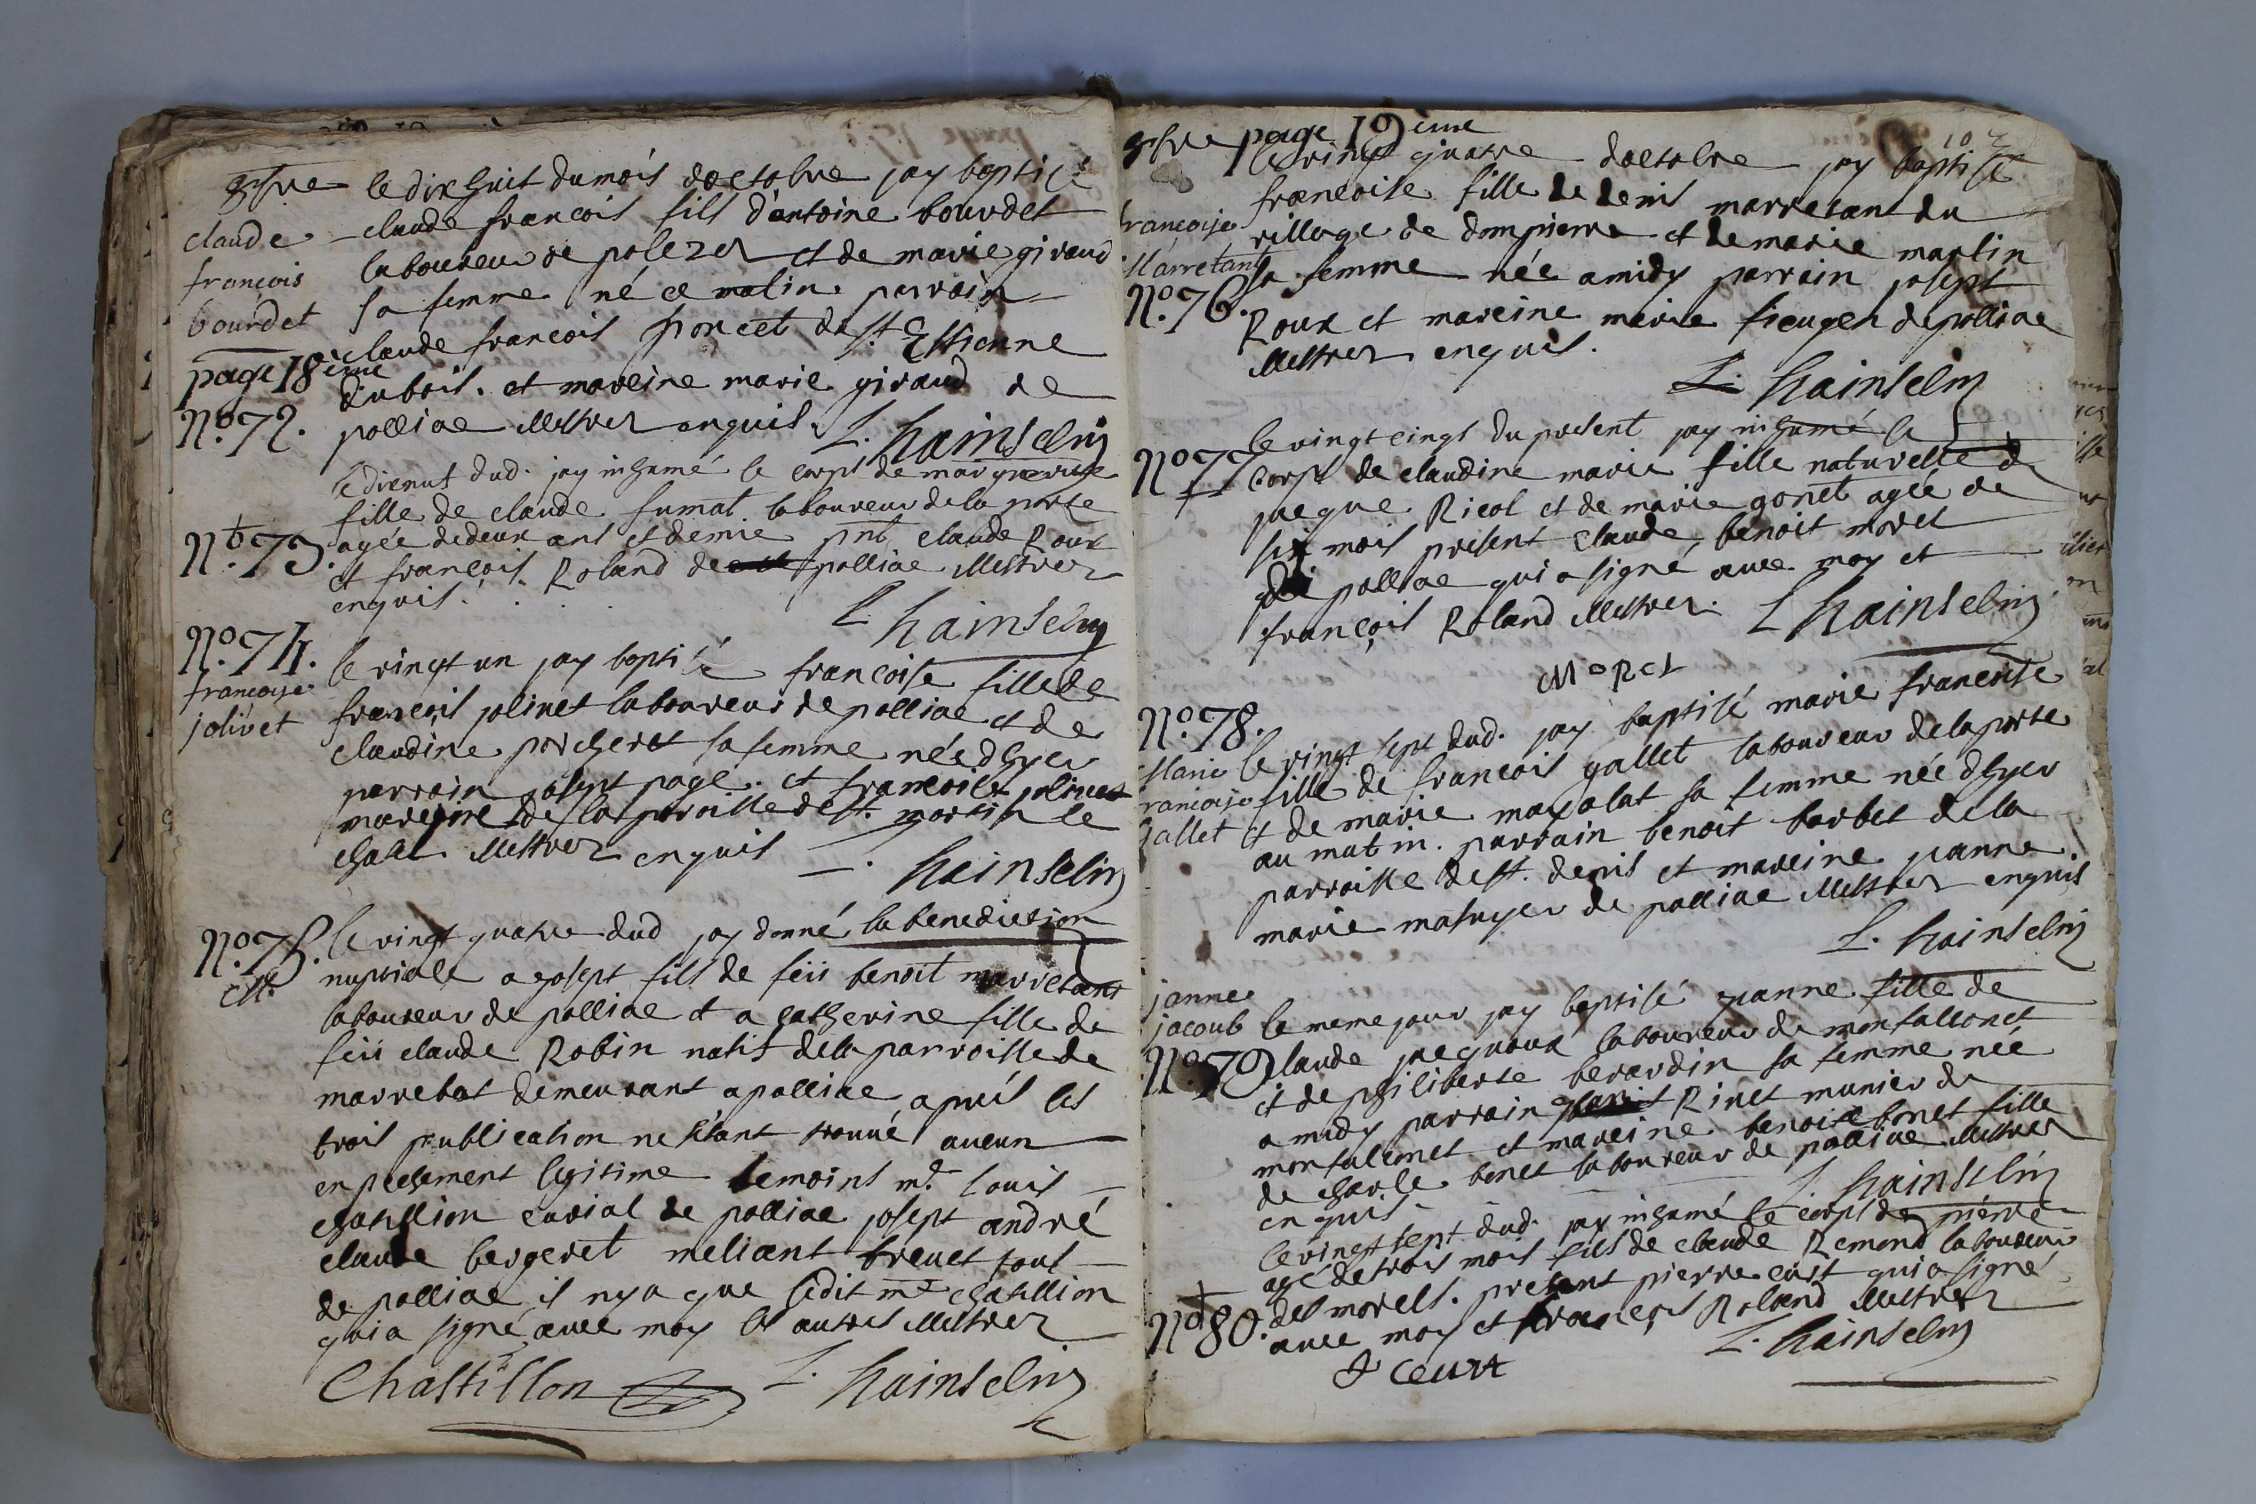 8bre le dix huit du mois doctobre jay baptisé
claude claude francois fils d'antoine bourdet
françois laboureur de polezet et de marie giraud
bourdet sa femme né ce matin parrain
claude francois poncet de st. Estienne
page 18eme du bois. et mareine marie giraud de
No. 72. polliac illettrez enquis. L. hainselin
le dixneuf dud. jay inhumé le corps de marguerite
fille de claude fumat laboureur de la porte
No. 73. agée de deux ans et demie pnt claude Roux
et françois Roland de polliac illettrez
enquis. L. hainselin
No. 74.
françoise le vingt un jay baptisé francoise fille de
jolivet françois jolivet laboureur de polliac et de
claudine porcheret sa femme née dhyer
parrain josept page et francoise jolivet
mareine de la paroisse de st. martin le
chatel illettrez enquis L. hainselin
No. 75. le vingt quatre dud jay donné la benediction
M. nuptiale a josept fils de feü benoit marretant
laboureur de polliac et a catherine fille de
feü claude Robin natif de la parroisse de
marrebot demeurant a polliac apres les
trois publication ne sétant trouvé aucun
enpechement legitime temoins mr. louis
chatillion curial de polliac josept andré
claude bergeret meliant brevet tous
de polliac il ny a que ledit mr chatillion
qui a signé avec moy les autres illettrez
Chastillon L. hainselin
8bre page 19eme 10
le vingt quatre doctobre jay baptisé
francoise fille de denis marretant du
francoise village de dompierre et de marie martin
Marretant sa femme née a midy parrain josept
No. 76. Roux et mareine marie fieuget de polliac
illettrez enquis.
L. hainselin
le vingt cinqt du present jay inhumé le
No 77 corps de claudine marie fille naturelle de
jacque Ricol et de marie gonet agée de
six mois present claude benoit moret
de polliac qui a signé avec moy et
françois Roland illettrez. L hainselin
MoRet
No. 78.
Marie le vingt sept dud. jay baptisé marie francoise
francoise fille de francois gallet laboureur de la porte
gallet et de marie mayalat sa femme née dhyer
au matin. parrain benoit barbet de la
parroisse de st. denis et mareine janne
marie matuyer de polliac illettrez enquis
L. hainselin
janne
jacoub le meme jour jay baptisé janne fille de
No. 79 claude jacquoux laboureur de monfalconet
et de philiberte berardin sa femme née
a midy parrain Rinet munier de
monfalconet et mareine benoite bonet fille
de charle bonet laboureur de polliac illettrez
enquis. L. hainselin
le vingt sept dud. jay inhumé le corps de pierre
agé de trois mois fils de claude Remond laboureur
des morels. present pierre cūrt qui a signé
No 80. avec moy et françois Roland illettrez
P Ceurt L. hainselin